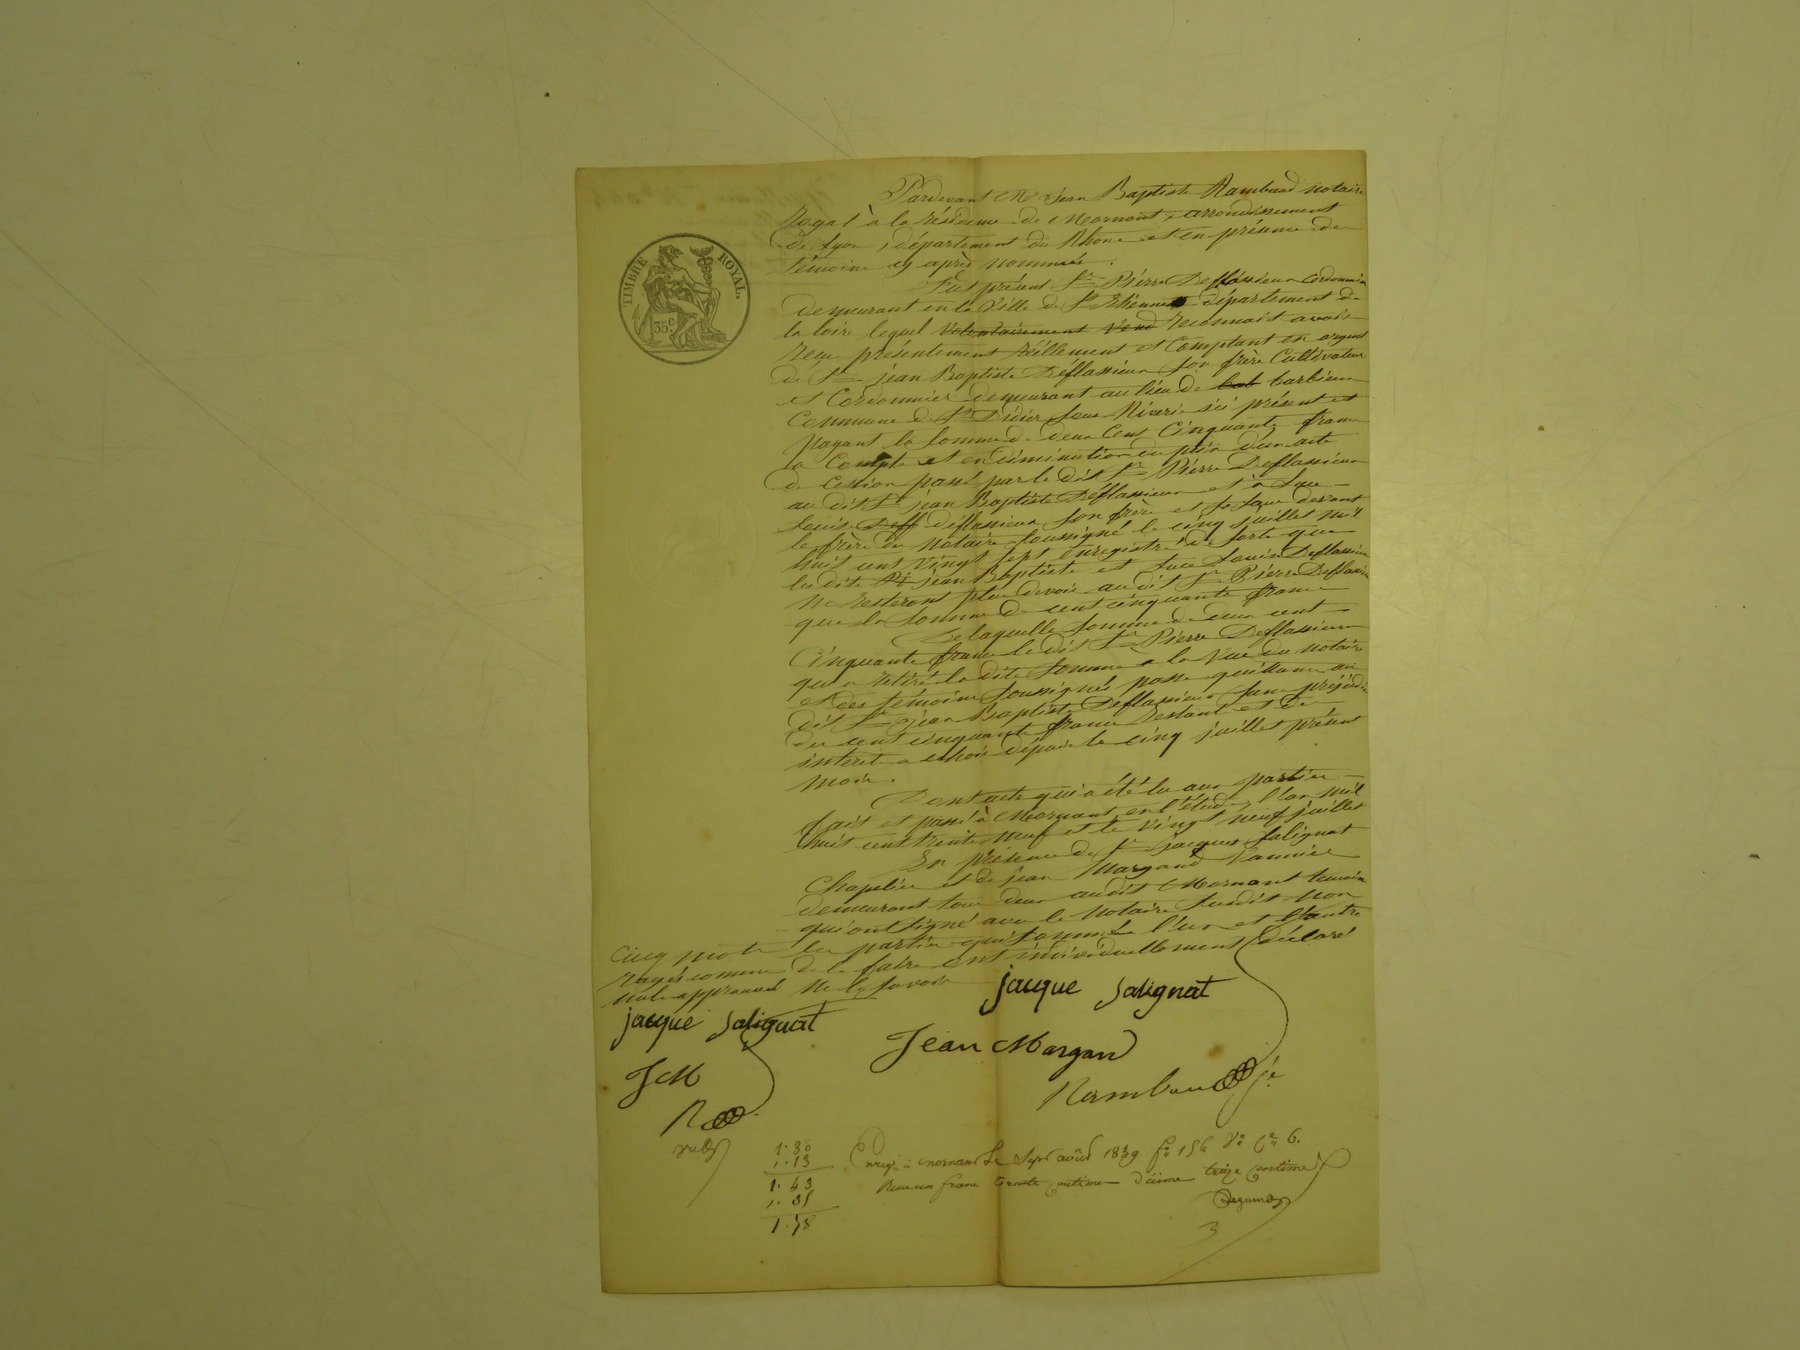 TIMBRE ROYAL.
35c
Pardevant Me Jean Baptiste Rambaud notaire
Royal à la résidence de Mornant, arrondissement
de Lyon, département du Rhône et en présence des
témoins cy après nommés.
Fut présent Sr Pierre Deflassieux Cordonnier
demeurant en la ville de St Etienne département de
la loire lequel volontairement vend reconnait avoir
reçu présentement réellement et Comptant en argent
de Sr jean Baptiste Déflassieux son frère Cultivateur
et Cordonnier demeurant au lieu de barbieux
Commune de St Didier sous Riverie ici présent et
payant la somme de deux Cens Cinquante francs
a Compte et en diminution du prix d'un acte
de Cession passé par le dit Sr Pierre Deflassieux
au dit Sr jean Baptiste Déflassieux et à Luc
Louis Deff déflassieux son frère et devant
le frère du notaire soussigné le cinq juillet mil
huit cent vingt sept enregistré de sorte que
les dits jean Baptiste et Luc Louis Deflassieux
ne resteront plus devoir au dit Sr Pierre Deflassieux
que la somme de cent cinquante francs
De laquelle somme de deux cent
Cinquante francs le dit Sr Pierre Deflassieux
qui a retiré la dite somme à la vue du notaire
et des témoins soussignés passe quittance au
dit Sr jean Baptiste Deflassieux sans préjudice
des cent cinquante francs restant et des
interet a echoir depuis le cinq juillet présent
mois.
Dont acte qui a été lu aux parties
fait et passé à Mornant en l'étude, l'an mil
huit cent trente neuf et le vingt neuf juillet
En présence de Sr jacques Salignat
Chapelier et de jean Margand
demeurant tous deux audit Mornant temoins
qui ont signé avec le notaire susdit non
Cinq mots les parties qui sommés l'un et l'autre
rayés comme de le faire ont individuellement déclaré
nuls approuvés ne le savoir
jacque Salignat
jacque Salignat
Jean Margand
JM
Rambaud
R
1.30
1.13
1.43
1.35
1.78
Enregé à mornant le sept août 1839 fo 156 Vo Ce 6.
Reçu un franc trente centimes décime treize centimes
3